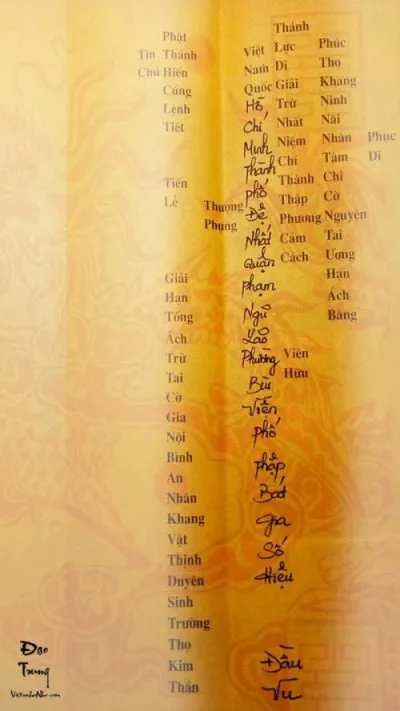 Phục Dĩ
Phúc Thọ Khang Ninh Nãi Nhân Tâm Chi Cờ Nguyên Tai Ương Hạn Ách Bằng
Thánh Lực Dĩ Giải Trừ Nhất Niệm Chí Thành Thập Phương Cảm Cách
Viên Hữu
Việt Nam Quốc Hồ Chí Minh Thành phố Đệ Nhất Quận Phạm Ngũ Lão Phường Bùi Viện phố pháp Bát gia Số Hiệu Đầu Vu
Thượng Phụng
Phật Thánh Hiền Cúng Lễnh Tiết Tiến Lễ Giải Hạn Tống Ách Trừ Tai Cờ Gia Nội Bình An Nhân Khang Vật Thịnh Duyên Sinh Trường Thọ Kim Thần
Tín Chủ
Đạo
Trung